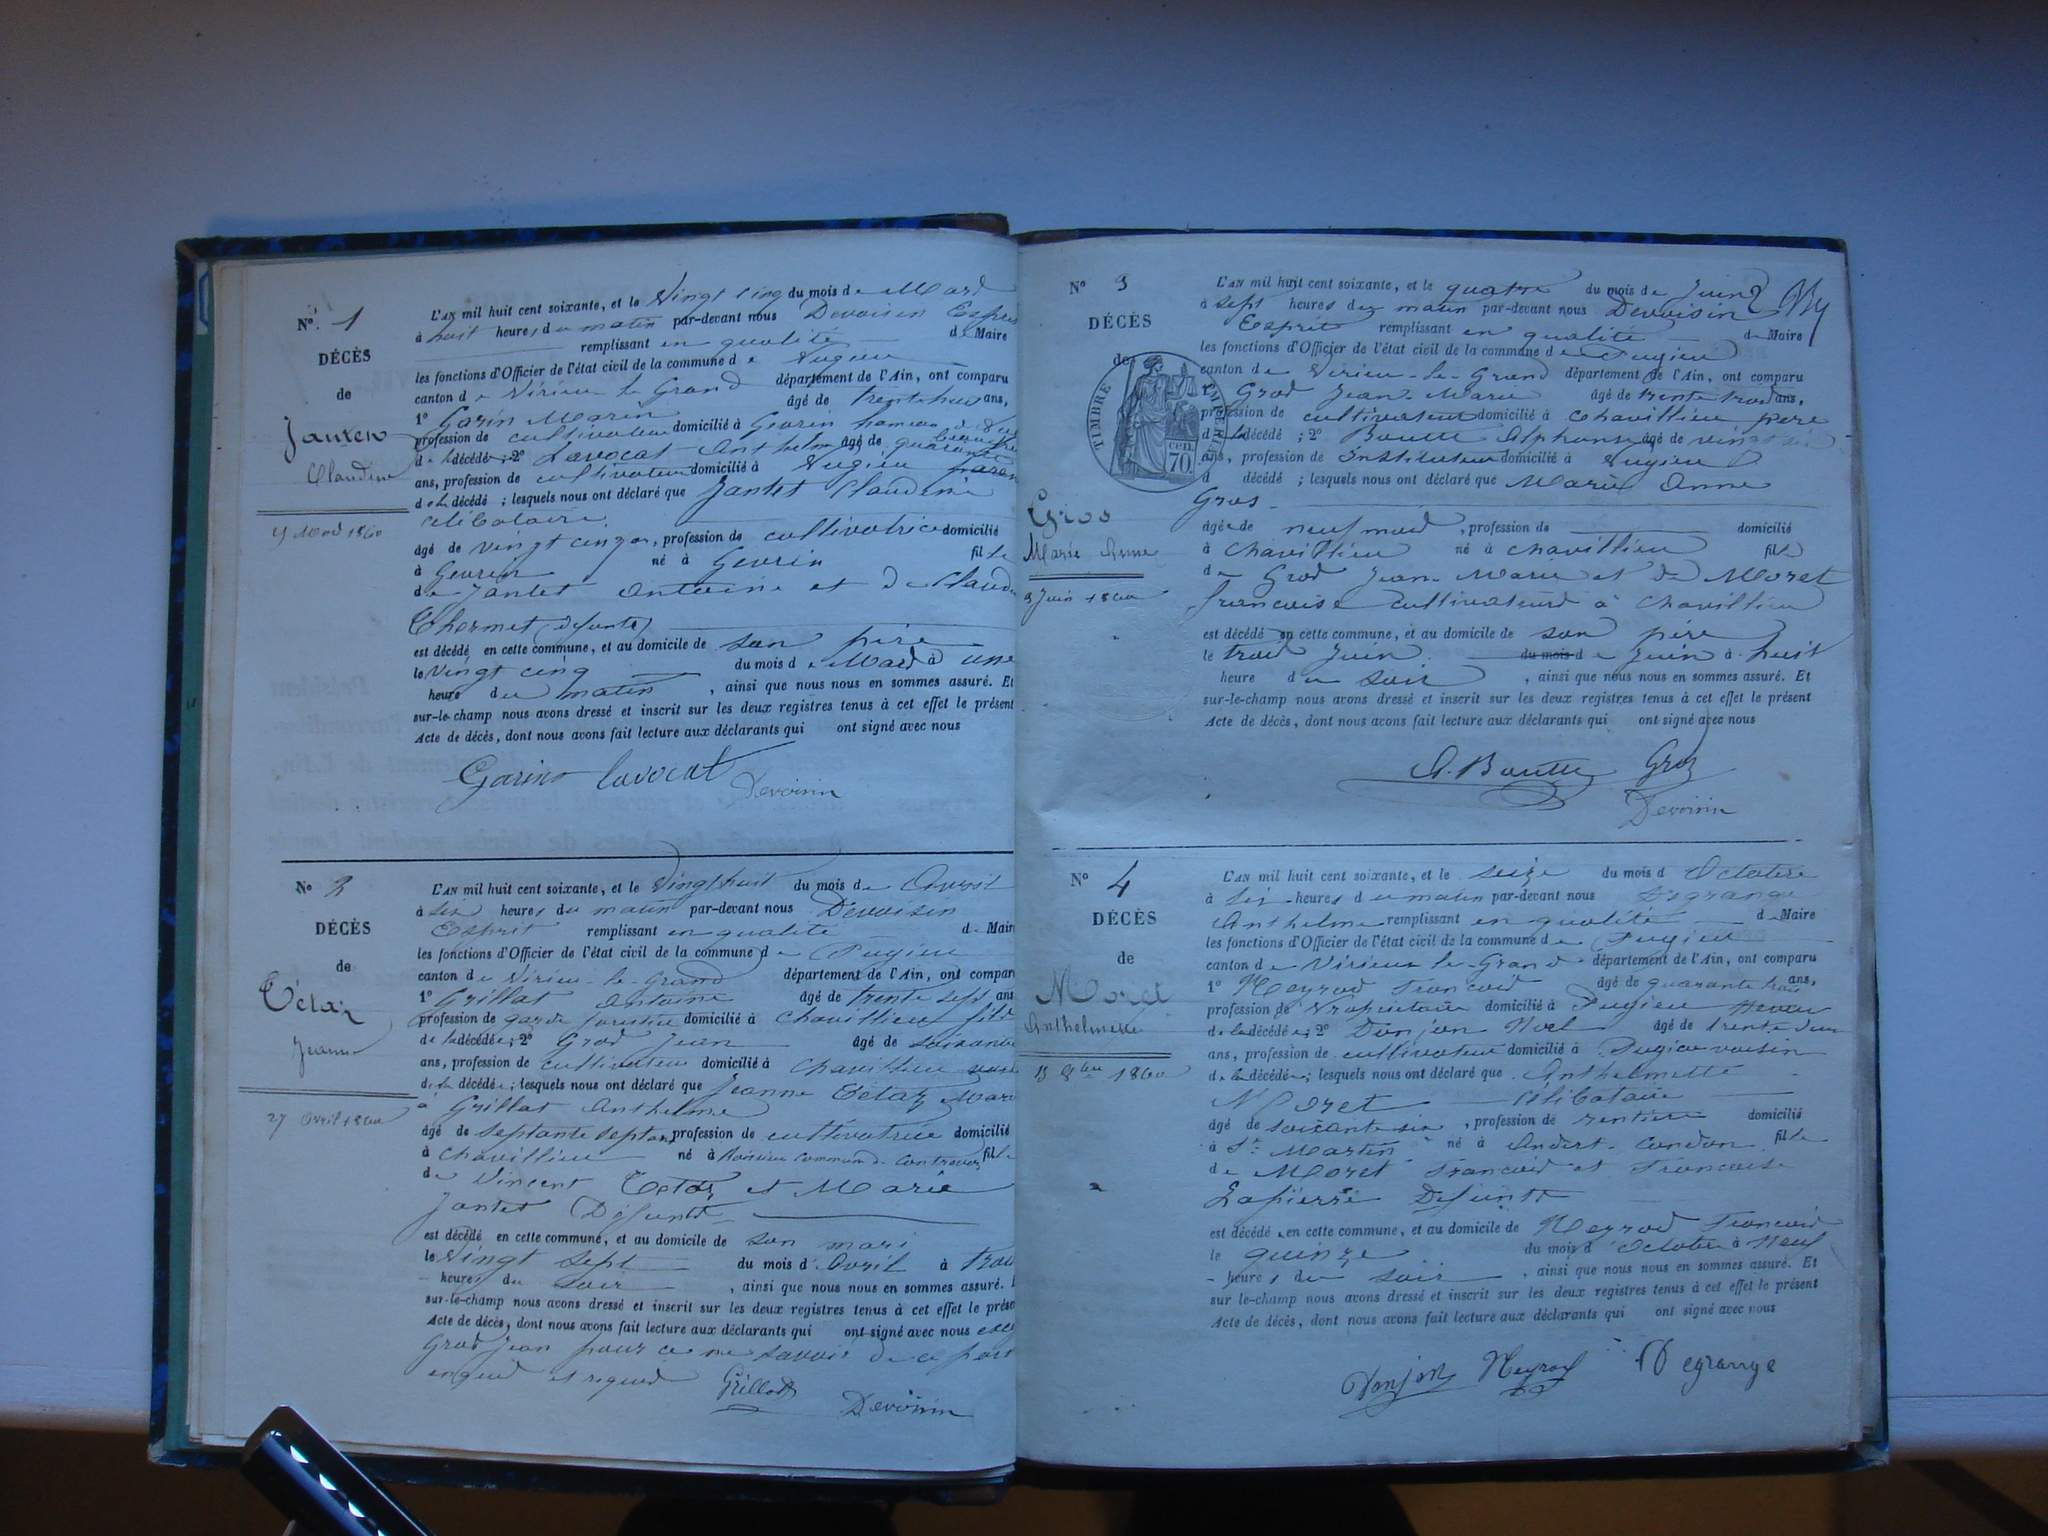 N° 1
DÉCÈS
de
Jantet
Claudine
L'AN mil huit cent soixante, et le Vingt cinq du mois de Mars
à huit heures du matin par-devant nous Devoisin Esprit
remplissant en qualité de Maire
les fonctions d'Officier de l'état civil de la commune de Pugieu
canton de Virieu le Grand département de l'Ain, ont comparu
1° Garin Marin âgé de trente huit ans,
profession de cultivateur domicilié à Gevrin hameau
de la décédée ; 2° Lavocat Anthelme âgé de quarante
ans, profession de cultivateur domicilié à Pugieu
de la décédé ; lesquels nous ont déclaré que Jantet Claudine
célibataire
âgé de vingt cinq ans, profession de cultivatrice domicilié
à Gevrin né à Gevrin fille
de Jantet Antoine et de Claudine
Thermet (défunte)
est décédé en cette commune, et au domicile de son père
le Vingt cinq du mois de Mars à une
heure du matin, ainsi que nous nous en sommes assuré. Et
sur-le-champ nous avons dressé et inscrit sur les deux registres tenus à cet effet le présent
Acte de décès, dont nous avons fait lecture aux déclarants qui ont signé avec nous
Garin Lavocat
Devoisin
N° 2
DÉCÈS
de
Tétaz
Jeanne
27 Avril 1860
L'AN mil huit cent soixante, et le Vingt huit du mois de Avril
à six heures du matin par-devant nous Devoisin
Esprit remplissant en qualité de Maire
les fonctions d'Officier de l'état civil de la commune de Pugieu
canton de Virieu-le-Grand département de l'Ain, ont comparu
1° Grillat Antoine âgé de trente sept ans
profession de garde forestier domicilié à Chavillieu fils
de la décédée ; 2° Gros Jean âgé de soixante
ans, profession de cultivateur domicilié à Chavillieu
de la décédée ; lesquels nous ont déclaré que Jeanne Tétaz
à Grillat Anthelme
âgé de septante sept ans profession de cultivatrice domicilié
à Chavillieu né à commune de Contrevoz fille
de Vincent Tétaz et Marie
Jantet Défunts
est décédé en cette commune, et au domicile de son mari
le Vingt sept du mois d'Avril à trois
heures du soir, ainsi que nous nous en sommes assuré.
sur-le-champ nous avons dressé et inscrit sur les deux registres tenus à cet effet le présent
Acte de décès, dont nous avons fait lecture aux déclarants qui ont signé avec nous
Gros Jean pour ce ne savoir de ce faire
enquis et requis Grillat
Devoisin
N° 3
DÉCÈS
de
TIMBRE IMPÉRIAL
70 cen.
Gros
Marie Anne
3 Juin 1860
L'AN mil huit cent soixante, et le quatre du mois de Juin
à sept heures du matin par-devant nous Devoisin
Esprit remplissant en qualité de Maire
les fonctions d'Officier de l'état civil de la commune de Pugieu
canton de Virieu-le-Grand département de l'Ain, ont comparu
1° Gros Jean-Marie âgé de trente trois ans,
profession de cultivateur domicilié à Chavillieu père
de la décédé ; 2° Boutte Alphonse âgé de vingt six
ans, profession de Instituteur domicilié à Pugieu
d décédé ; lesquels nous ont déclaré que Marie Anne
Gros
âgé de neuf mois, profession de domicilié
à Chavillieu né à Chavillieu fille
de Gros Jean-Marie et de Moret
françoise cultivateurs à Chavillieu
est décédé en cette commune, et au domicile de son père
le trois Juin du mois de Juin à huit
heure du soir, ainsi que nous nous en sommes assuré. Et
sur-le-champ nous avons dressé et inscrit sur les deux registres tenus à cet effet le présent
Acte de décès, dont nous avons fait lecture aux déclarants qui ont signé avec nous
A. Boutte Gros
Devoisin
N° 4
DÉCÈS
de
Moret
Anthelmette
15 8bre 1860
L'AN mil huit cent soixante, et le seize du mois d Octobre
à six heures du matin par-devant nous Degrange
Anthelme remplissant en qualité de Maire
les fonctions d'Officier de l'état civil de la commune de Pugieu
canton de Virieu le-Grand département de l'Ain, ont comparu
1° Neyrod François âgé de quarante trois ans,
profession de Propriétaire domicilié à Pugieu neveu
de la décédée ; 2° Donjon Noel âgé de trente deux
ans, profession de cultivateur domicilié à Pugieu voisin
de la décédée ; lesquels nous ont déclaré que Anthelmette
Moret célibataire
âgé de soixante six, profession de rentière domicilié
à St Martin né à Andert-Condon fille
de Moret François et Françoise
Lapierre Défunts
est décédée en cette commune, et au domicile de Neyrod François
le quinze du mois d'Octobre à Neuf
heures du soir, ainsi que nous nous en sommes assuré. Et
sur-le-champ nous avons dressé et inscrit sur les deux registres tenus à cet effet le présent
Acte de décès, dont nous avons fait lecture aux déclarants qui ont signé avec nous
Donjon Neyrod Degrange